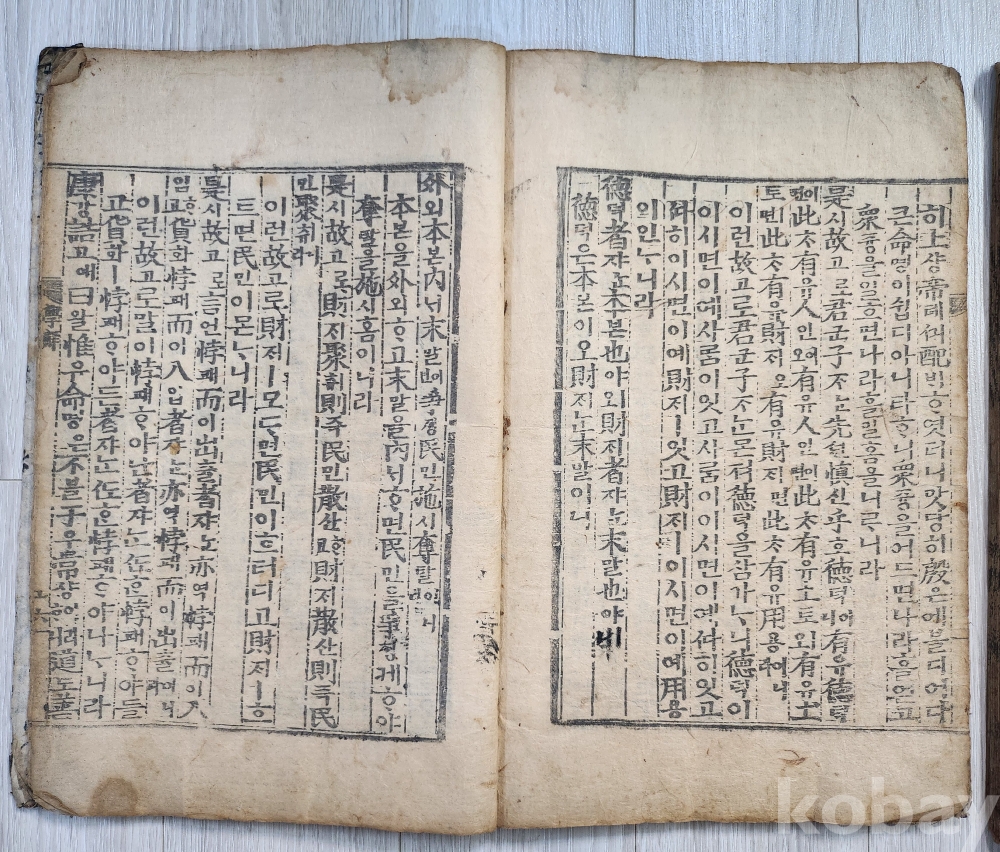 히上샹帝뎨ᄭᅴ配ᄇᆡᄒᆞ엿더니맛당히殷은에볼디어다
큰命명이쉽디아니타ᄒᆞ니衆즁을어드면나라흘얻고
衆즁을일ᄒᆞ면나라흘일홈을니ᄅᆞ니라
是시故고로君군子ᄌᆞᄂᆞᆫ先션愼신乎호德덕이니有유德덕
이면此ᄎᆞ有유人인이오有유人인이면此ᄎᆞ有유土토ㅣ오有유土
토ㅣ면此ᄎᆞ有유財ᄌᆡ오有유財ᄌᆡ면此ᄎᆞ有유用용이니라
이런故고로君군子ᄌᆞᄂᆞᆫ몬져德덕을삼가ᄂᆞ니德덕이
이시면이예사ᄅᆞᆷ이잇고사ᄅᆞᆷ이이시면이예ᄯᅡ히잇고
ᄯᅡ히이시면이예財ᄌᆡㅣ잇고財ᄌᆡㅣ이시면이예用용
이인ᄂᆞ니라
德덕者쟈ᄂᆞᆫ本본也야ㅣ오財ᄌᆡ者쟈ᄂᆞᆫ末말也야ㅣ니
德덕은本본이오財ᄌᆡᄂᆞᆫ末말이니
外외本본內ᄂᆡ末말이면爭ᄌᆡᆼ民민施시奪탈이니라
本본을外외ᄒᆞ고末말을內ᄂᆡᄒᆞ면民민을爭ᄌᆡᆼ케ᄒᆞ야
奪탈을施시홈이니라
是시故고로財ᄌᆡ聚취則즉民민散산ᄒᆞ고財ᄌᆡ散산則즉民
민聚취니라
이런故고로財ᄌᆡㅣ모ᄃᆞ면民민이흐터디고財ᄌᆡㅣ흐
트면民민이몬ᄂᆞ니라
是시故고로言언悖패而이出츌者쟈ᄂᆞᆫ亦역悖패而이入
입ᄒᆞ고貨화悖패而이入입者쟈ᄂᆞᆫ亦역悖패而이出츌이니라
이런故고로말이悖패ᄒᆞ야난者쟈ᄂᆞᆫᄯᅩᄒᆞᆫ悖패ᄒᆞ야들
고貨화ㅣ悖패ᄒᆞ야든者쟈ᄂᆞᆫᄯᅩᄒᆞᆫ悖패ᄒᆞ야나ᄂᆞ니라
康강誥고애曰왈惟유命명은不블于우常샹이라ᄒᆞ니道도善션
kobay